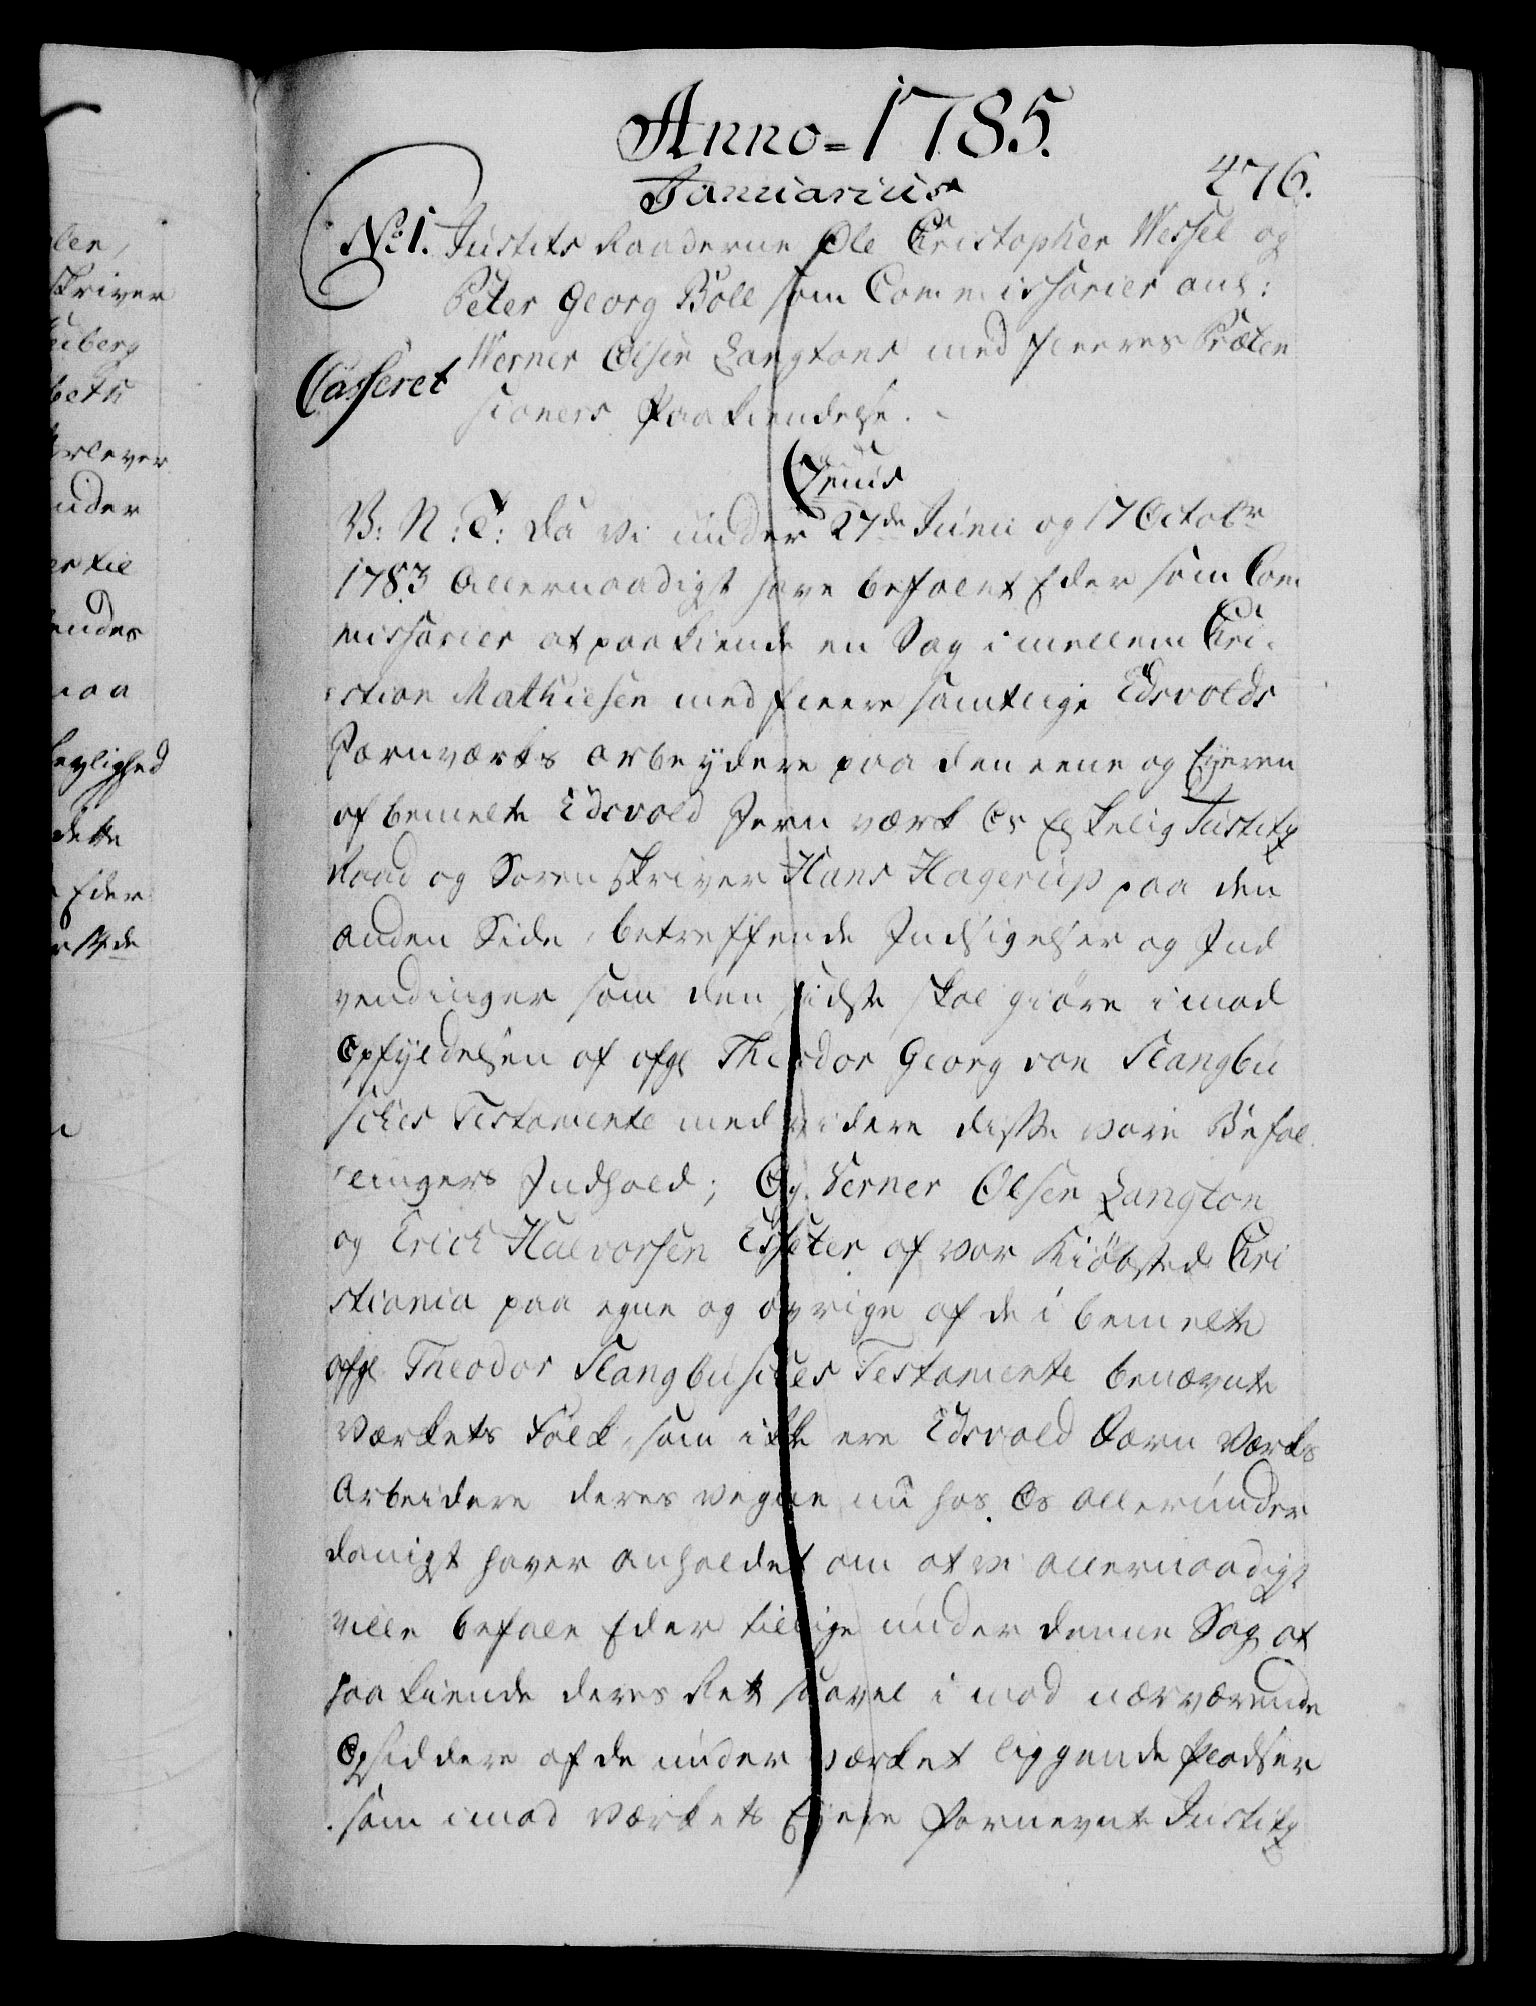 Anno = 1785.
Januarius
476.
No: 1. Justits Raaderne Ole Christopher Wessel og
Peter Georg Böll som Commissarier anl:
Werner Olsen Langtons med fleeres Præten
Casseret
sioners Paakiendelse.
V: N: T: Da Vi under 27de Junii og 17 Octobr
1783 Allernaadigst have befalet Eder som Com
missarier at paakiende en Sag imellem Chri-
stian Mathiesen med fleere samtlige Edsvolds
Jernværks Arbeydere paa den eene og Eyeren
af bemelte Edsvold Jernværk Os Elskelig Justitz
Raad og Sorenskriver Hans Hagerup paa den
anden Side, betreffende Indsigelser og Ind
vendinger som den sidste skal giöre imod
Opfyldelsen af afg: Theodor Georg von Slangbu
sches Testamente med videre disse vore Befal
linger Indhold; Og Verner Olsen Langton
og Erich Halvorsen Elseter af vor Kiöbsted Chri
stiania paa egne og övrige af de i bemelte
afg: Theodor Slangbusches Testamente benævnte
Værkets Folck, som ikke ere Edsvold Jern Værks
Arbeidere deres vegne nu hos Os allerunder
danigst haver anholdet om at vi allernaadigst
ville befale Eder tillige under denne Sag at
paakiende deres Ret saavel imod nærværende
Opsiddere af de under værket liggende pladser
som imod Værkets Eyere fornevnte Justitz